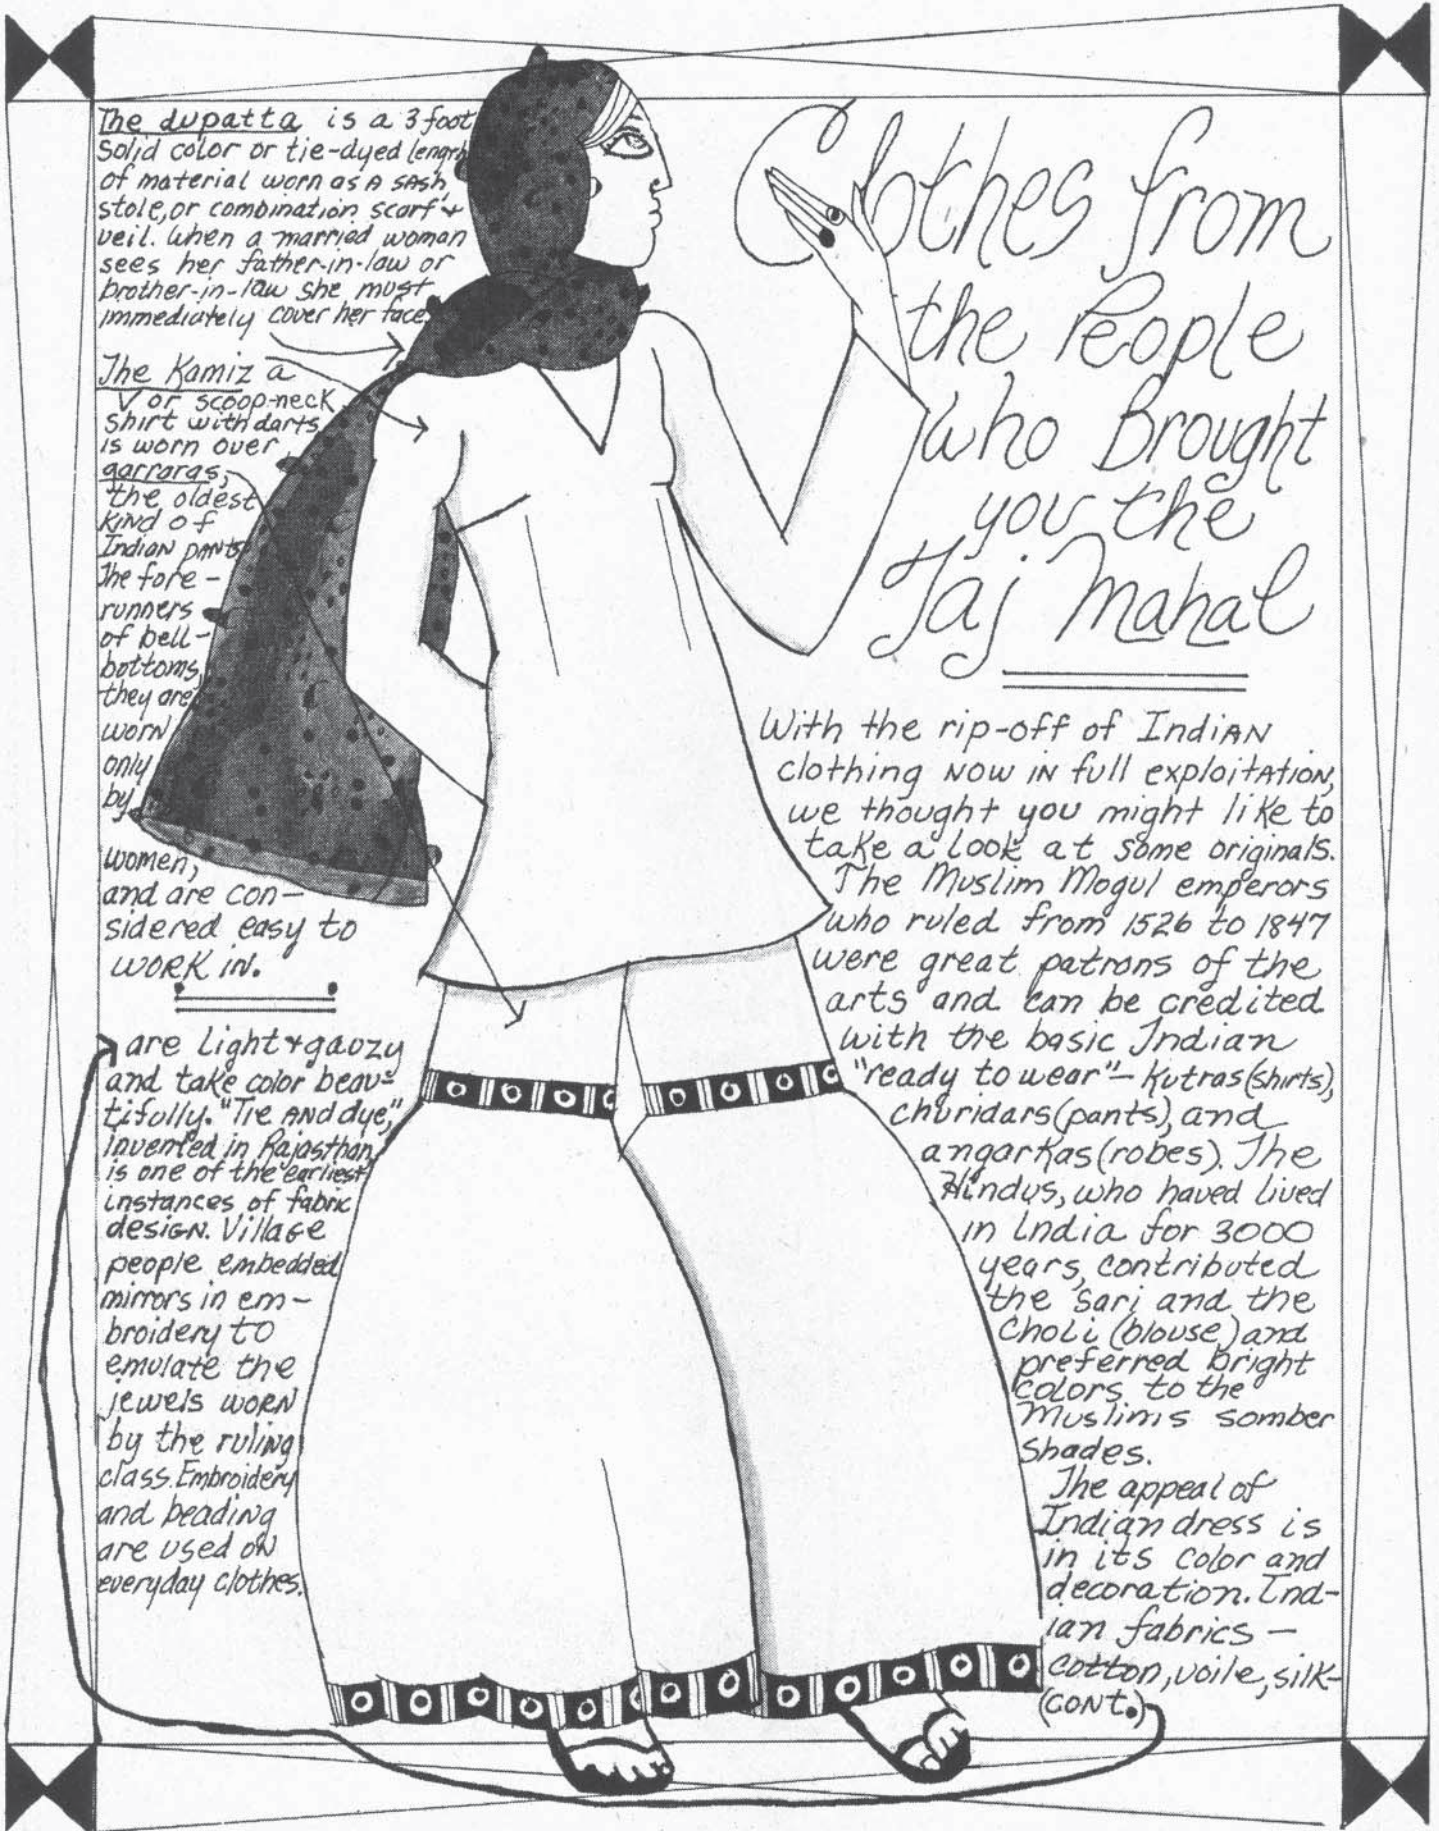 Clothes from
the People
who Brought
you the
Taj Mahal
The dupatta is a 3 foot
solid color or tie-dyed length
of material worn as a sash,
stole, or combination scarf +
veil. When a married woman
sees her father-in-law or
brother-in-law she must
immediately cover her face.
The Kamiz a
V or scoop-neck
shirt with darts
is worn over
garraras,
the oldest
kind of
Indian pants.
The fore-
runners
of bell-
bottoms,
they are
worn
only
by
women,
and are con-
sidered easy to
work in.
With the rip-off of Indian
clothing now in full exploitation,
we thought you might like to
take a look at some originals.
The Muslim Mogul emperors
who ruled from 1526 to 1847
were great patrons of the
arts and can be credited
with the basic Indian
"ready to wear" – Kutras (shirts),
churidars (pants), and
angarkas (robes). The
Hindus, who haved lived
in India for 3000
years, contributed
the sari and the
choli (blouse) and
preferred bright
colors to the
Muslims somber
shades.
The appeal of
Indian dress is
in its color and
decoration. Ind-
ian fabrics –
cotton, voile, silk-
(cont.)
are light + gauzy
and take color beau-
tifully. "Tie and dye,"
invented in Rajasthan,
is one of the earliest
instances of fabric
design. Village
people embedded
mirrors in em-
broidery to
emulate the
jewels worn
by the ruling
class. Embroidery
and beading
are used on
everyday clothes.